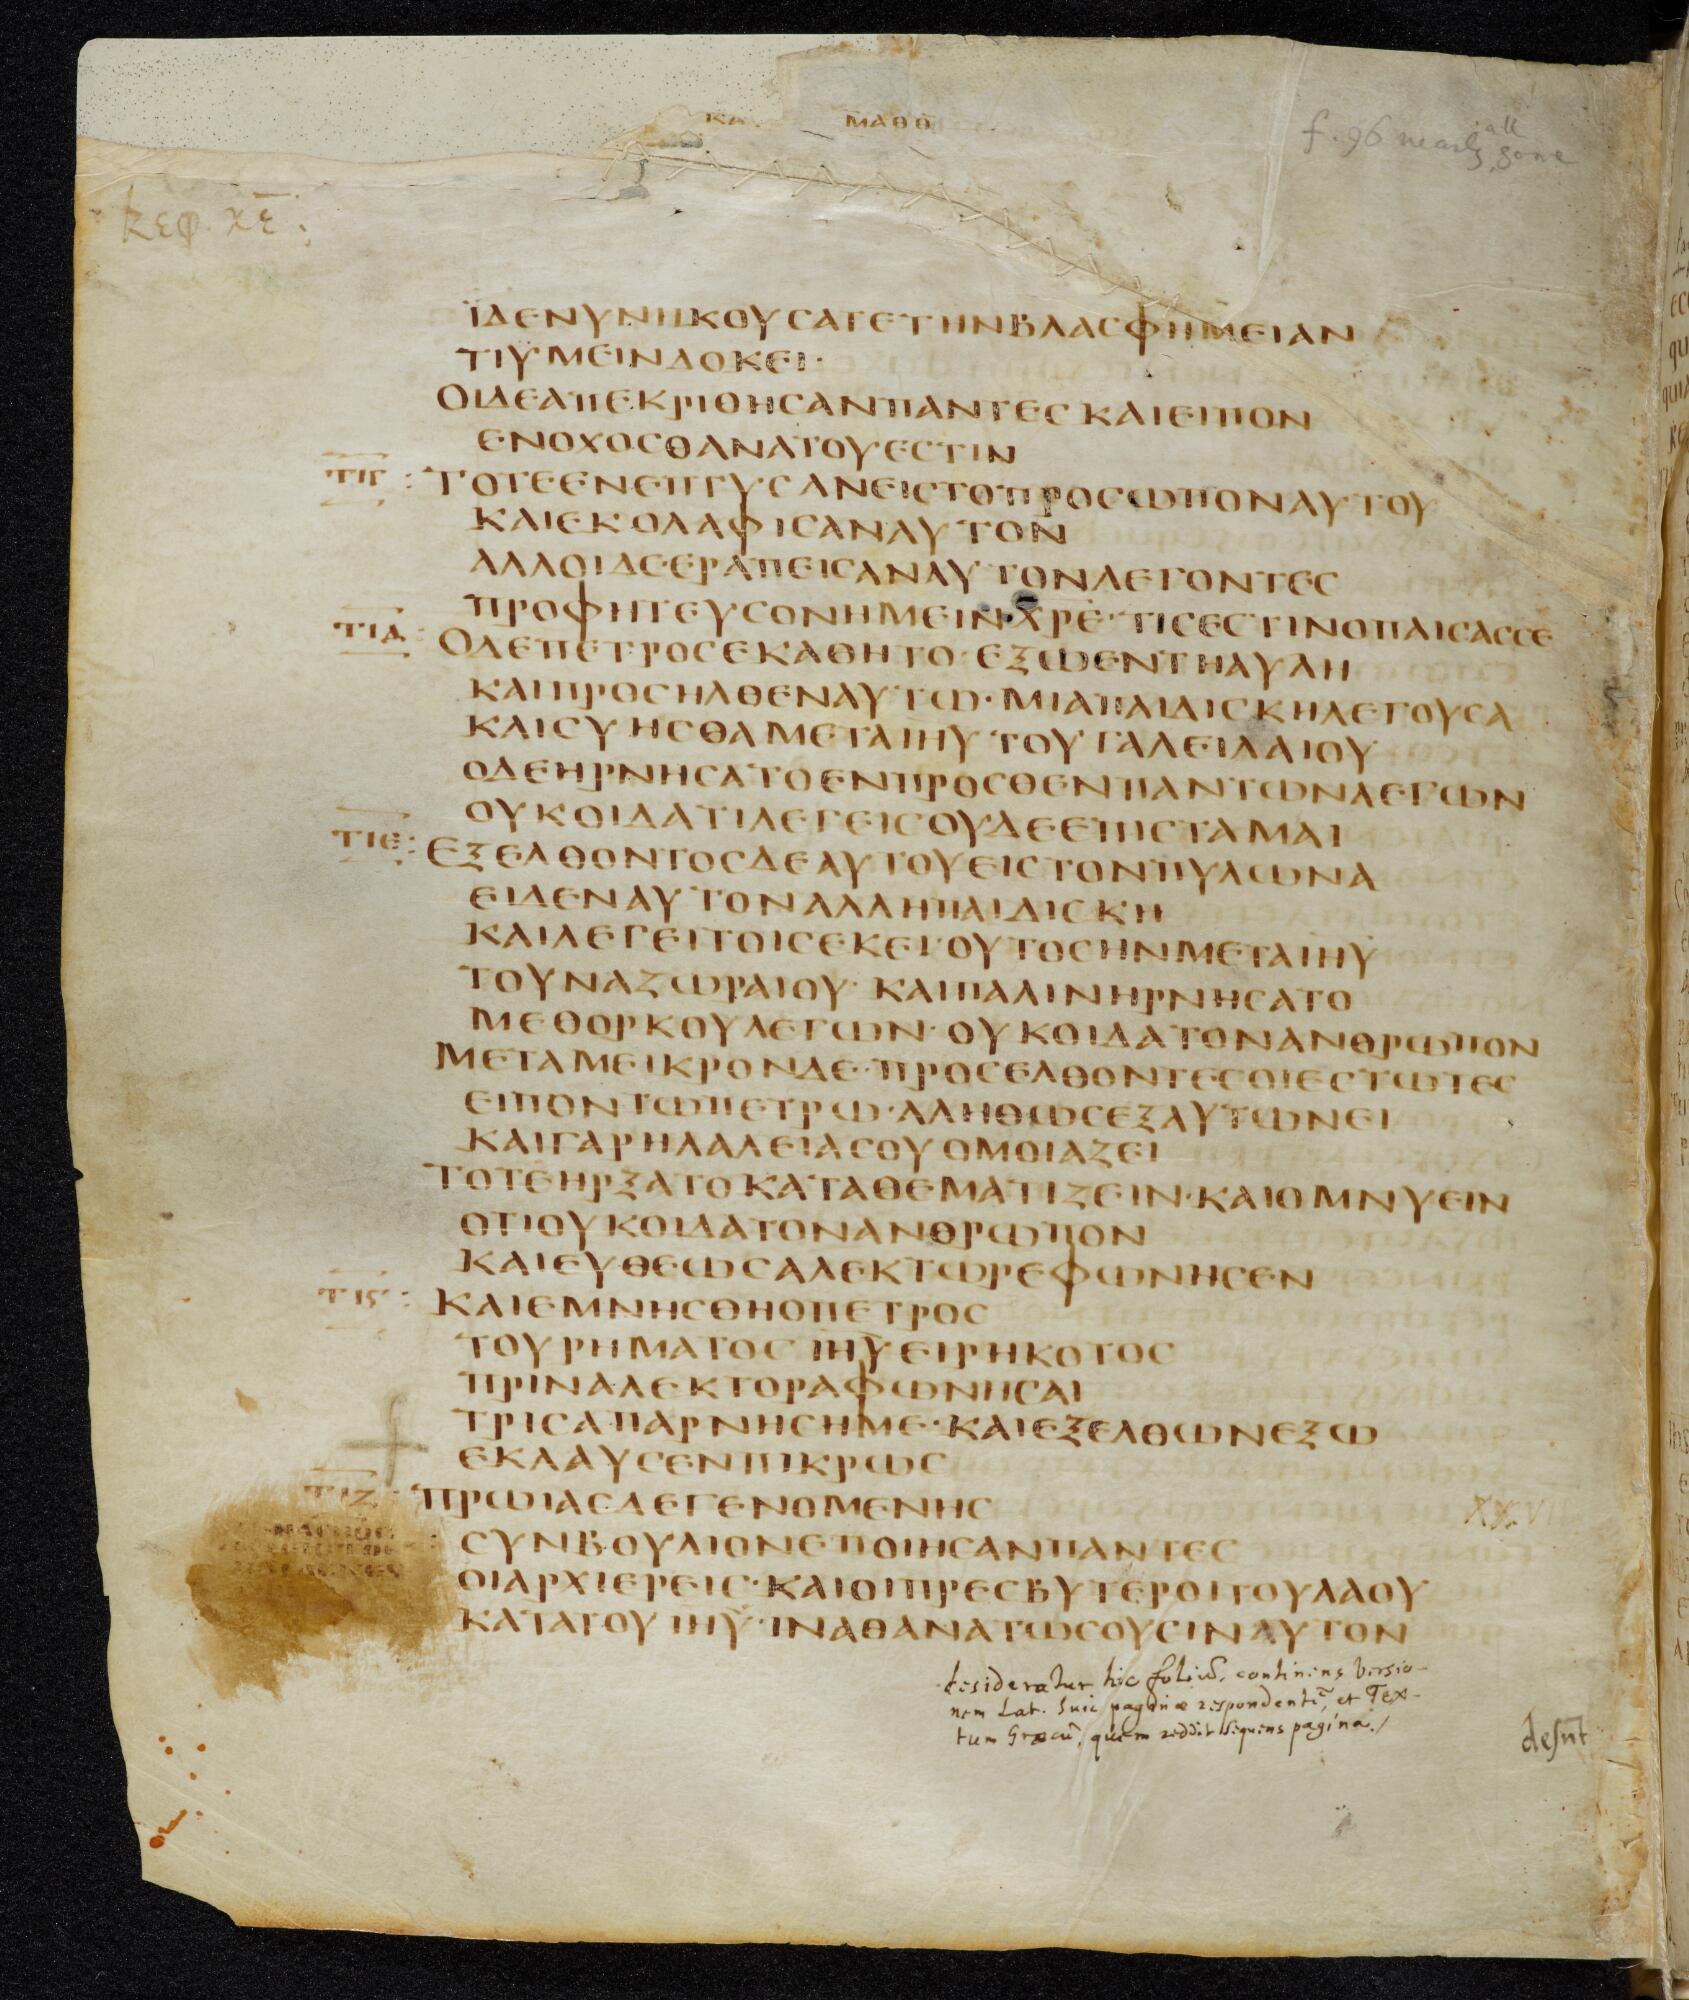 ΜΑΘΘ
f. 96 nearly all gone
κεφ. κε :
ΪΔΕΝΥΝΗΚΟΥСΑΤΕΤΗΝΒΛΑСΦΗΜΕΙΑΝ
ΤΙΥΜΕΙΝΔΟΚΕΙ·
ΟΙΔΕΑΠΕΚΡΙΘΗСΑΝΠΑΝΤΕСΚΑΙΕΙΠΟΝ
ΕΝΟΧΟСΘΑΝΑΤΟΥΕСΤΙΝ
ΤΙΓ : ΤΟΤΕΕΝΕΠΤΥСΑΝΕΙСΤΟΠΡΟСΩΠΟΝΑΥΤΟΥ
ΚΑΙΕΚΟΛΑΦΙСΑΝΑΥΤΟΝ
ΑΛΛΟΙΔΕ·ΕΡΑΠΕΙСΑΝΑΥΤΟΝΛΕΓΟΝΤΕС
ΠΡΟΦΗΤΕΥСΟΝΗΜΕΙΝΧΡΕ·ΤΙСΕСΤΙΝΟΠΑΙСΑССΕ
ΤΙΔ : ΟΔΕΠΕΤΡΟСΕΚΑΘΗΤΟ·ΕΞΩΕΝΤΗΑΥΛΗ
ΚΑΙΠΡΟСΗΛΘΕΝΑΥΤΩ·ΜΙΑΠΑΙΔΙСΚΗΛΕΓΟΥСΑ
ΚΑΙСΥΗСΘΑΜΕΤΑΙΗΥΤΟΥΓΑΛΕΙΛΑΙΟΥ
ΟΔΕΗΡΝΗСΑΤΟΕΝΠΡΟСΘΕΝΠΑΝΤΩΝΛΕΓΩΝ
ΟΥΚΟΙΔΑΤΙΛΕΓΕΙСΟΥΔΕΕΠΙСΤΑΜΑΙ
ΤΙΕ : ΕΞΕΛΘΟΝΤΟСΔΕΑΥΤΟΥΕΙСΤΟΝΠΥΛΩΝΑ
ΕΙΔΕΝΑΥΤΟΝΑΛΛΗΠΑΙΔΙСΚΗ
ΚΑΙΛΕΓΕΙΤΟΙСΕΚΕΙ·ΟΥΤΟСΗΝΜΕΤΑΙΗΥ
ΤΟΥΝΑΖΩΡΑΙΟΥ·ΚΑΙΠΑΛΙΝΗΡΝΗСΑΤΟ
ΜΕΘΟΡΚΟΥΛΕΓΩΝ·ΟΥΚΟΙΔΑΤΟΝΑΝΘΡΩΠΟΝ
ΜΕΤΑΜΕΙΚΡΟΝΔΕ·ΠΡΟСΕΛΘΟΝΤΕСΟΙΕСΤΩΤΕС
ΕΙΠΟΝΤΩΠΕΤΡΩ·ΑΛΗΘΩСΕΞΑΥΤΩΝΕΙ
ΚΑΙΓΑΡΗΛΑΛΕΙΑСΟΥΟΜΟΙΑΖΕΙ
ΤΟΤΕΗΡΞΑΤΟΚΑΤΑΘΕΜΑΤΙΖΕΙΝ·ΚΑΙΟΜΝΥΕΙΝ
ΟΤΙΟΥΚΟΙΔΑΤΟΝΑΝΘΡΩΠΟΝ
ΚΑΙΕΥΘΕΩСΑΛΕΚΤΩΡΕΦΩΝΗСΕΝ
ΤΙϛ : ΚΑΙΕΜΝΗСΘΗΟΠΕΤΡΟС
ΤΟΥΡΗΜΑΤΟСΙΗΥΕΙΡΗΚΟΤΟС
ΠΡΙΝΑΛΕΚΤΟΡΑΦΩΝΗСΑΙ
ΤΡΙСΑΠΑΡΝΗСΗΜΕ·ΚΑΙΕΞΕΛΘΩΝΕΞΩ
ΕΚΛΑΥСΕΝΠΙΚΡΩС
ΤΙΖ : ΠΡΩΙΑСΔΕΓΕΝΟΜΕΝΗС
СΥΝΒΟΥΛΙΟΝΕΠΟΙΗСΑΝΠΑΝΤΕС
ΟΙΑΡΧΙΕΡΕΙС·ΚΑΙΟΙΠΡΕСΒΥΤΕΡΟΙΤΟΥΛΑΟΥ
ΚΑΤΑΤΟΥΙΗΥ·ΙΝΑΘΑΝΑΤΩСΟΥСΙΝΑΥΤΟΝ
desideratur hic foliũ, continens Versio-
nem Lat. huic paginæ respondentẽ, et Tex-
tum Græcũ, quem reddit sequens pagina./
desũt